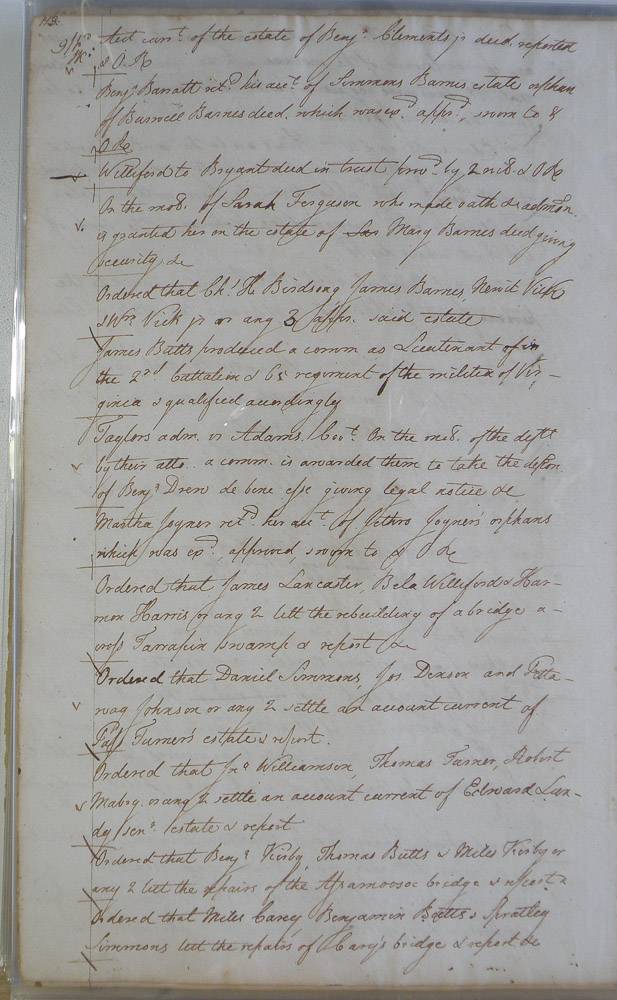 Acct curr.t of the estate of Benj.a Clements jr decd. reported
& O R
Benj.a Barratt ret.d his acc.t of Simmons Barnes estate orphan
of Burwell Barnes decd. which was ex.d appr.d, sworn to &
O R
Williford to Bryant deed in trust prov.d by 2 wits. & O R
On the mo. of Sarah Ferguson who made oath &c admon.
is granted her on the estate of Mary Barnes decd giving
security &c
Ordered that Ch.s H Birdsong James Barnes, Newit Vick
& Wm Vick jr or any 3 appr. said estate
James Batts produced a comm as Lieutenant of in
the 2nd battalion & 65 regiment of the militia of Vir-
ginia & qualified accordingly
Taylors adm. vs Adams On the mo. of the defts
by their atto. a comm. is awarded them to take the depon
of Benj.a Drew de bene esse giving legal notice &c
Martha Joyner ret.d her acc.t of Jethro Joyner's orphans
which was ex.d, approved, sworn to & O R
Ordered that James Lancaster, Bela Williford & Har-
mon Harris or any 2 lett the rebuilding of a bridge a-
cross Tarrapin swamp & report &c
Ordered that Daniel Simmons, Jos. Denson and Petta-
way Johnson or any 2 settle an account current of
Turner's estate & report.
Ordered that Jno Williamson, Thomas Turner, Robert
Mabry or any 2 settle an account current of Edward Lun-
dy sen.r estate & report
Ordered that Benj.a Kirby, Thomas Butts & Miles Kirby or
any 2 lett the repairs of the Assamoosoc bridge & report &
Ordered that Miles Cary Benjamin Butts & Spratley
Simmons lett the repairs of Cary's bridge & report &c